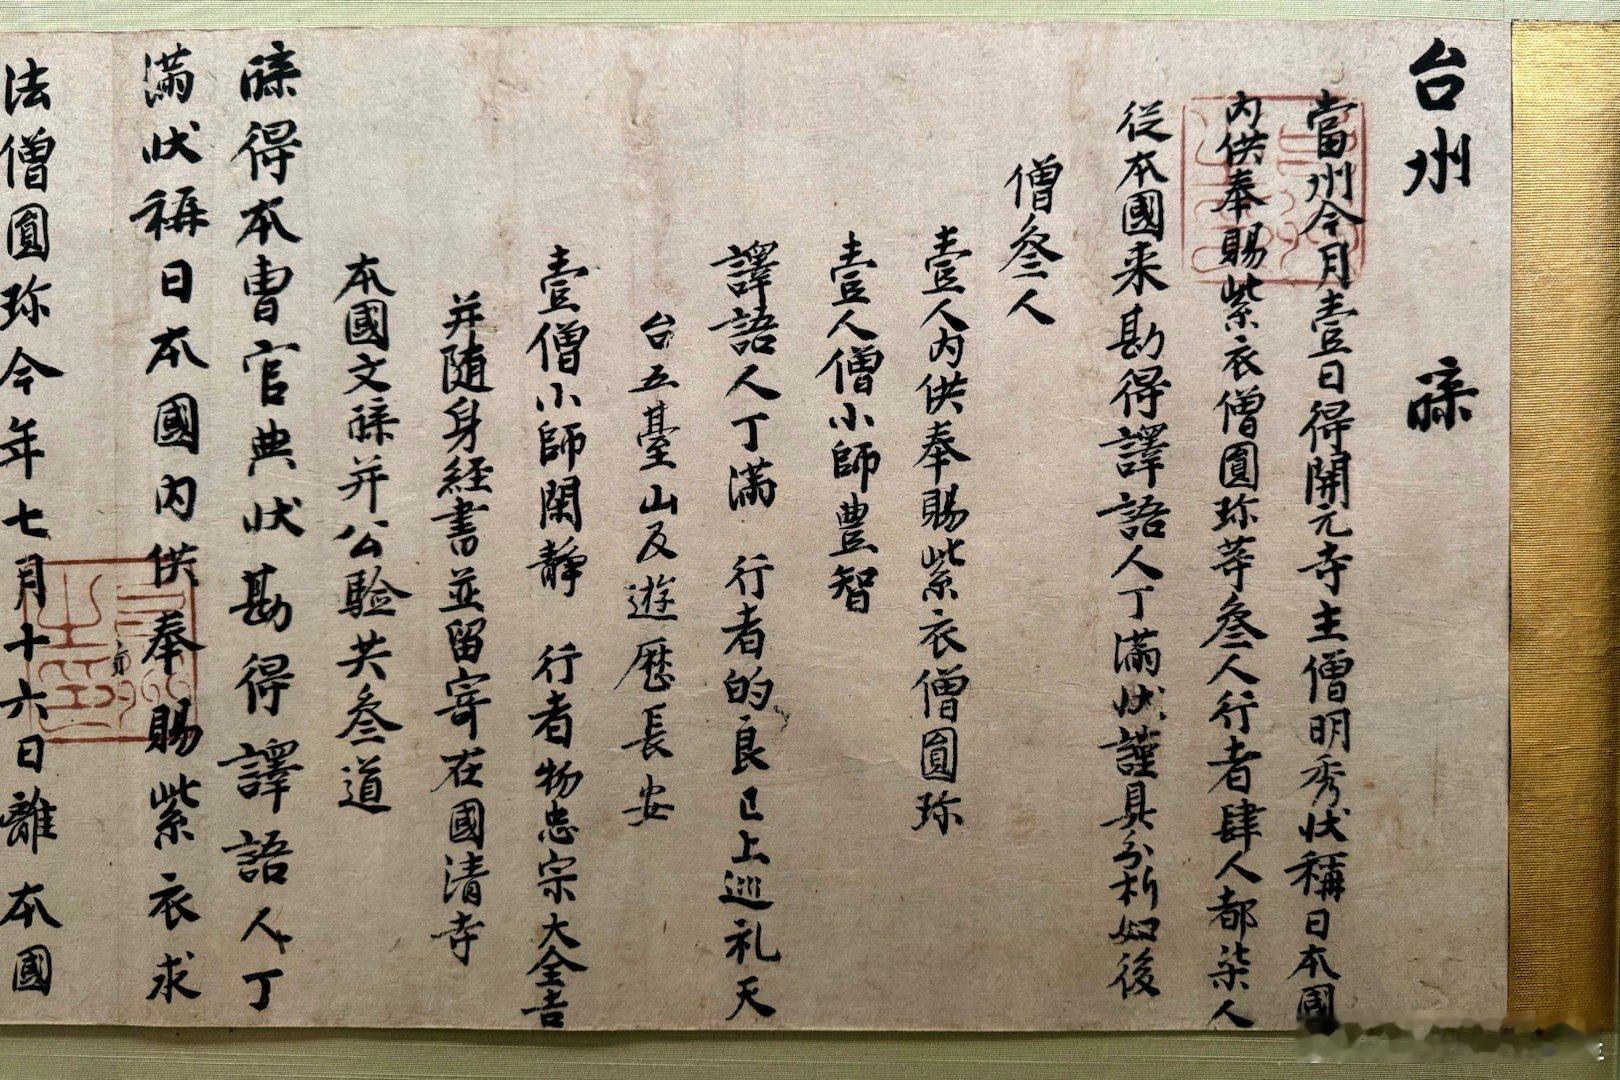 台州 牒
當州今月壹日得開元寺主僧明秀狀稱日本國
内供奉賜紫衣僧圓珎等叄人行者肆人都柒人
從本國来勘得譯語人丁滿狀謹具分析如後
僧叄人
壹人内供奉賜紫衣僧圓珎
壹人僧小師豊智
譯語人丁滿 行者的良已上巡礼天
台五臺山及遊歷長安
壹僧小師閑靜 行者物忠宗大全吉
并随身経書並留寄在國清寺
本國文牒并公驗共叄道
牒得本曹官典狀勘得譯語人丁
滿狀稱日本國内供奉賜紫衣求
法僧圓珎今年七月十六日離本國